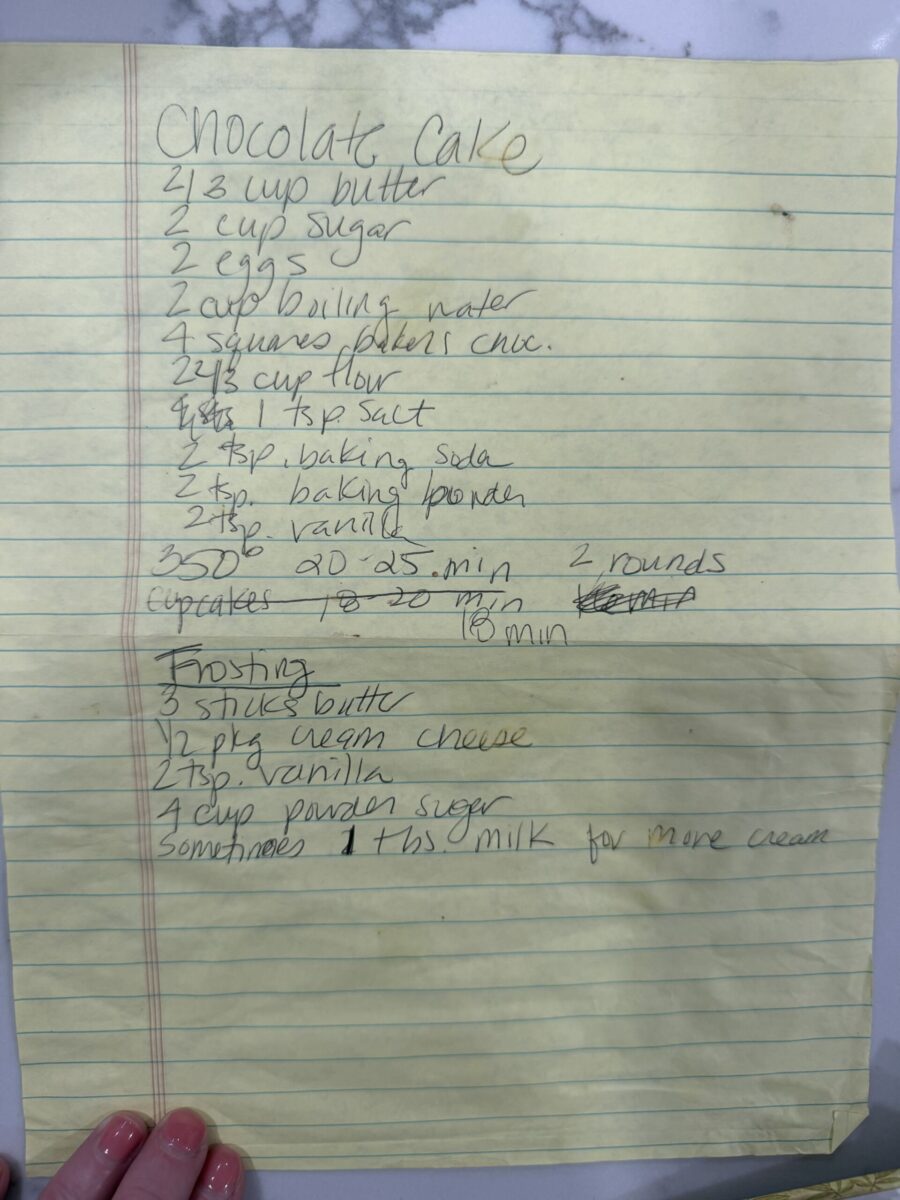 Chocolate Cake
2/3 cup butter
2 cup sugar
2 eggs
2 cup boiling water
4 squares bakers choc.
2 2/3 cup flour
1 tsp. salt
2 tsp. baking soda
2 tsp. baking powder
2 tsp. vanilla
350° 20-25 min 2 rounds
cupcakes 18-20 min
18 min
Frosting
3 sticks butter
1/2 pkg cream cheese
2 tsp. vanilla
4 cup powder sugar
Sometimes 1 tbs. milk for more cream